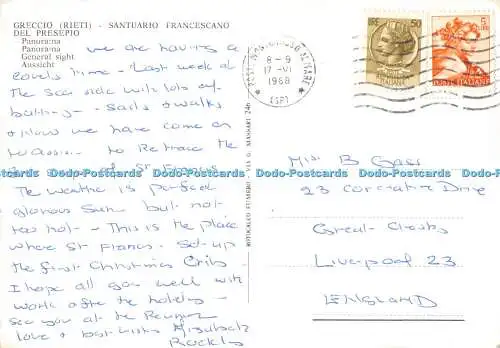 GRECCIO (RIETI) - SANTUARIO FRANCESCANO
DEL PRESEPIO
Panorama
Panorama
General sight
Aussicht
we are having a
lovely time - Last week at
the sea side with lots of
bathing - Sails & walks
& Now we have come on
to Assisi to Retrace the
of St Francis
The weather is perfect
glorious Sun but not
too hot - This is the place
where St Francis Set up
the first Christmas Crib
I hope all goes well with
work after the holiday -
See you at the Reunion
love & best wishes
8-9
17-VI
1968
LIRE 50
ITALIANE
5 LIRE
POSTE ITALIANE
ROTOCALCO FUMERO - VIA G. MASSARI 246
Miss B Gass
23 Coronation Drive
Great Crosby
Liverpool 23
ENGLAND
Dodo-Postcards Dodo-Postcards Dodo-Postcards Dodo-Postcards
Dodo-Postcards Dodo-Postcards Dodo-Postcards Dodo-Postcards